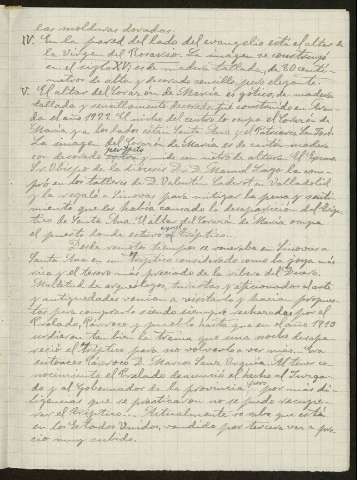 las molduras doradas.
IV. En la pared del lado del evangelio está el altar de
la Virgen del Rosario. La imagen se construyó
en el siglo XVI, es de madera tallada, de 80 centí-
metros de alta y decorado sencillo pero elegante.
V. El altar del Corazón de María es gótico, de madera
tallada y sencillamente decorado; fue construido en Aran-
da el año 1922. El nicho del centro lo ocupa el Corazón de
María y a los lados están Santa Ana y el Patriarca San José.
La imagen del Corazón de María es de cartón madera
con decorado perfecto y mide un metro de altura. El Excmo.
Sr. Obispo de la diócesis D. D. Manuel Lago la com-
pró en los talleres de D. Valentín en Valladolid
y la regaló a Sinovas para mitigar la pena y senti-
miento que les había causado la desaparición del Tríp-
tico de Santa Ana. El altar del Corazón de María ocupa
el puesto donde estuvo aquel Tríptico.
Desde remotos tiempos se veneraba en Sinovas a
Santa Ana en un Tríptico considerado como la joya más
rica y el tesoro más preciado de la ribera del Duero.
Multitud de arqueólogos, turistas y aficionados al arte
y antigüedades venían a visitarlo y hacían propues-
tas para comprarlo siendo siempre rechazadas por el
Prelado, Párroco y pueblo hasta que en el año 1910
urdieron tan bien la trama que una noche desapa-
reció el Tríptico para no volverlo a ver más. Era
entonces Párroco D. Marcos Sanz. Al tener co-
nocimiento el Prelado denunció el hecho al Juzga-
do y al Gobernador de la provincia pero por más di-
ligencias que se practicaron no se pudo recupe-
rar el Tríptico. Actualmente se sabe que está
en los Estados Unidos, vendido por tercera vez a pre-
cio muy subido.